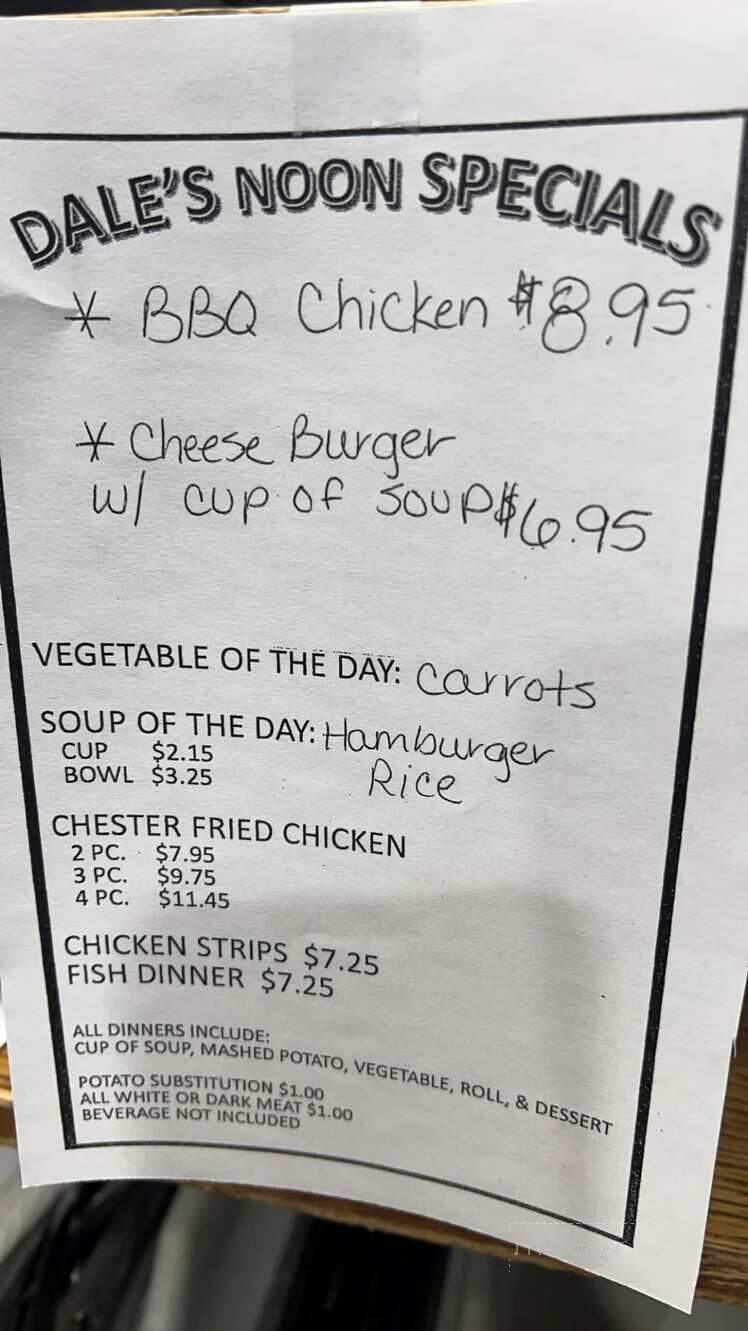 DALE'S NOON SPECIALS
* BBQ Chicken $8.95
* Cheese Burger
w/ cup of soup $6.95
VEGETABLE OF THE DAY: carrots
SOUP OF THE DAY: Hamburger
CUP $2.15
BOWL $3.25 Rice
CHESTER FRIED CHICKEN
2 PC. $7.95
3 PC. $9.75
4 PC. $11.45
CHICKEN STRIPS $7.25
FISH DINNER $7.25
ALL DINNERS INCLUDE:
CUP OF SOUP, MASHED POTATO, VEGETABLE, ROLL, & DESSERT
POTATO SUBSTITUTION $1.00
ALL WHITE OR DARK MEAT $1.00
BEVERAGE NOT INCLUDED